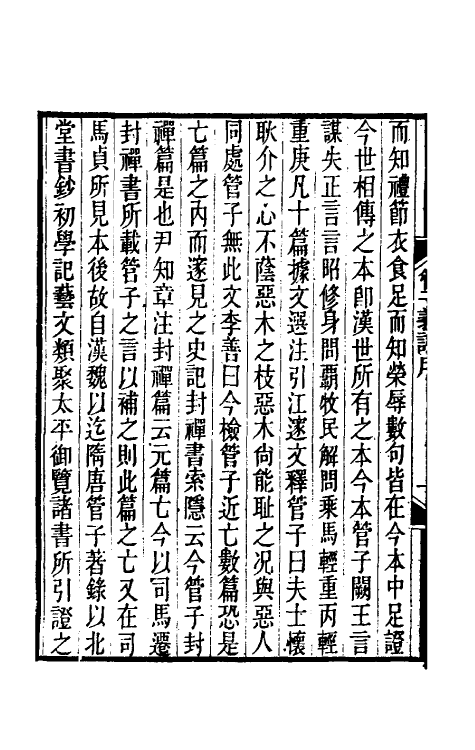 而知禮節衣食足而知榮辱數句皆在今本中足證
今世相傳之本卽漢世所有之本今本管子闕王言
謀失正言言昭修身問霸牧民解問乘馬輕重丙輕
重庚凡十篇據文選注引江邃文釋管子曰夫士懷
耿介之心不蔭惡木之枝惡木尙能耻之況與惡人
同處管子無此文李善曰今檢管子近亡數篇恐是
七篇之內而邃見之史記封禪書索隱云今管子封
禪篇是也尹知章注封禪篇云元篇亡今以司馬遷
封禪書所載管子之言以補之則此篇之亡又在司
馬貞所見本後故自漢魏以迄隋唐管子著錄以北
堂書鈔初學記藝文類聚太平御覽諸書所引證之